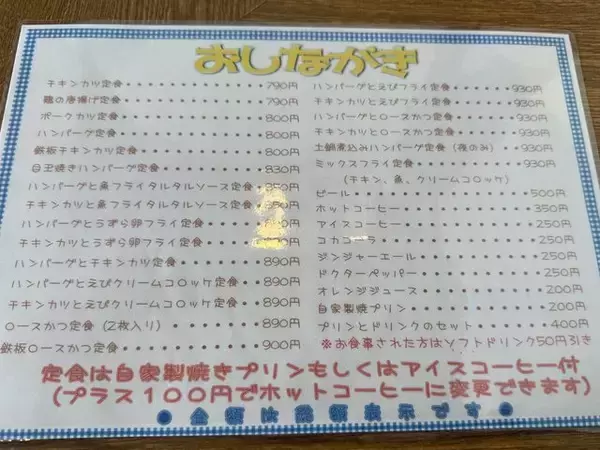 おしながき
チキンカツ定食・・・・・・・・・・790円
鶏の唐揚げ定食・・・・・・・・・・790円
ポークカツ定食・・・・・・・・・・800円
ハンバーグ定食・・・・・・・・・・800円
鉄板チキンカツ定食・・・・・・・・800円
目玉焼きハンバーグ定食・・・・・・830円
ハンバーグと魚フライタルタルソース定食
チキンカツと魚フライタルタルソース定食
ハンバーグとうずら卵フライ定食
チキンカツとうずら卵フライ定食
ハンバーグとチキンカツ定食・・・・890円
ハンバーグとえびクリームコロッケ定食・・890円
チキンカツとえびクリームコロッケ定食・・890円
ロースかつ定食(2枚入り)・・・・・890円
鉄板ロースかつ定食・・・・・・・・900円
ハンバーグとえびフライ定食・・・・930円
チキンカツとえびフライ定食・・・・930円
ハンバーグとロースかつ定食・・・・930円
チキンカツとロースかつ定食・・・・930円
土鍋煮込みハンバーグ定食(夜のみ)・・930円
ミックスフライ定食・・・・・・・・930円
(チキン、魚、クリームコロッケ)
ビール・・・・・・・・・・・・・・500円
ホットコーヒー・・・・・・・・・・350円
アイスコーヒー・・・・・・・・・・250円
コカコーラ・・・・・・・・・・・・250円
ジンジャーエール・・・・・・・・・250円
ドクターペッパー・・・・・・・・・250円
オレンジジュース・・・・・・・・・200円
自家製焼プリン・・・・・・・・・・200円
プリンとドリンクのセット・・・・・400円
※お食事された方はソフトドリンク50円引き
定食は自家製焼きプリンもしくはアイスコーヒー付
(プラス100円でホットコーヒーに変更できます)
●金額は総額表示です●